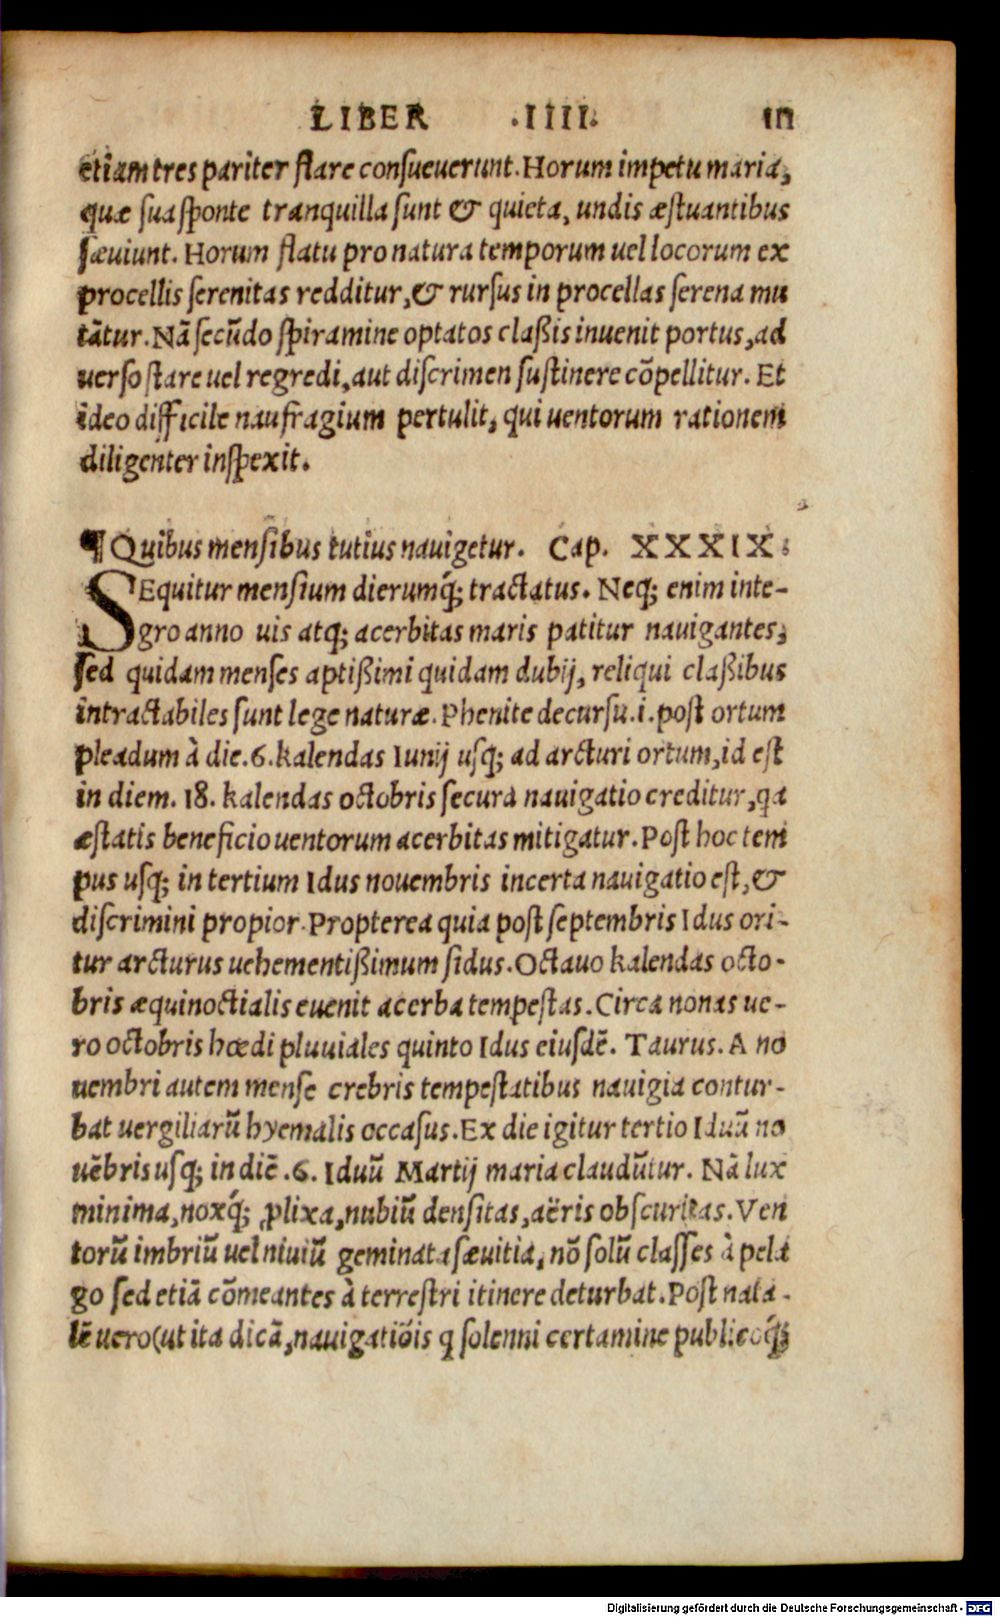 LIBER .IIII. 111
etiam tres pariter flare consueuerunt. Horum impetu maria,
quæ sua sponte tranquilla sunt & quieta, undis æstuantibus
sæuiunt. Horum flatu pro natura temporum uel locorum ex
procellis serenitas redditur, & rursus in procellas serena mu
tãtur. Nã secũdo spiramine optatos claßis inuenit portus, ad
uerso stare uel regredi, aut discrimen sustinere cõpellitur. Et
ideo difficile naufragium pertulit, qui uentorum rationem
diligenter inspexit.
¶ Quibus mensibus tutius nauigetur. Cap. XXXIX.
SEquitur mensium dierumq́; tractatus. Neq; enim inte-
gro anno uis atq; acerbitas maris patitur nauigantes,
sed quidam menses aptißimi quidam dubij, reliqui claßibus
intractabiles sunt lege naturæ. Phenite decursu .i. post ortum
pleadum à die .6. kalendas Iunij usq; ad arcturi ortum, id est
in diem. 18. kalendas octobris secura nauigatio creditur, qa
æstatis beneficio uentorum acerbitas mitigatur. Post hoc tem
pus usq; in tertium Idus nouembris incerta nauigatio est, &
discrimini propior. Propterea quia post septembris Idus ori-
tur arcturus uehementißimum sidus. Octauo kalendas octo-
bris æquinoctialis euenit acerba tempestas. Circa nonas ue-
ro octobris hœdi pluuiales quinto Idus eiusdẽ. Taurus. A no
uembri autem mense crebris tempestatibus nauigia contur-
bat uergiliarũ hyemalis occasus. Ex die igitur tertio Iduũ no
uẽbris usq; in diẽ .6. Iduũ Martij maria claudũtur. Nã lux
minima, noxq́; ꝓlixa, nubiũ densitas, aëris obscuritas. Ven
torũ imbriũ uel niuiũ geminata sæuitia, nõ solũ classes à pela
go sed etiã cõmeantes à terrestri itinere deturbat. Post nata-
lẽ uero (ut ita dicã, nauigatiõis q solenni certamine publicoq́;
Digitalisierung gefördert durch die Deutsche Forschungsgemeinschaft - DFG